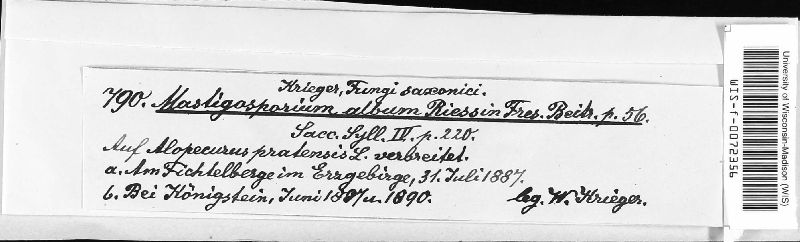 Krieger, Fungi saxonici.
790. Mastigosporium album Riess in Fres. Beitr. p. 56.
Sacc. Syll. IV. p. 220.
Auf Alopecurus pratensis L. verbreitet.
a. Am Fichtelberge im Erzgebirge, 31. Juli 1887.
b. Bei Königstein, Juni 1887 u. 1890. leg. W. Krieger.
University of Wisconsin-Madison (WIS)
WIS-f-0072356